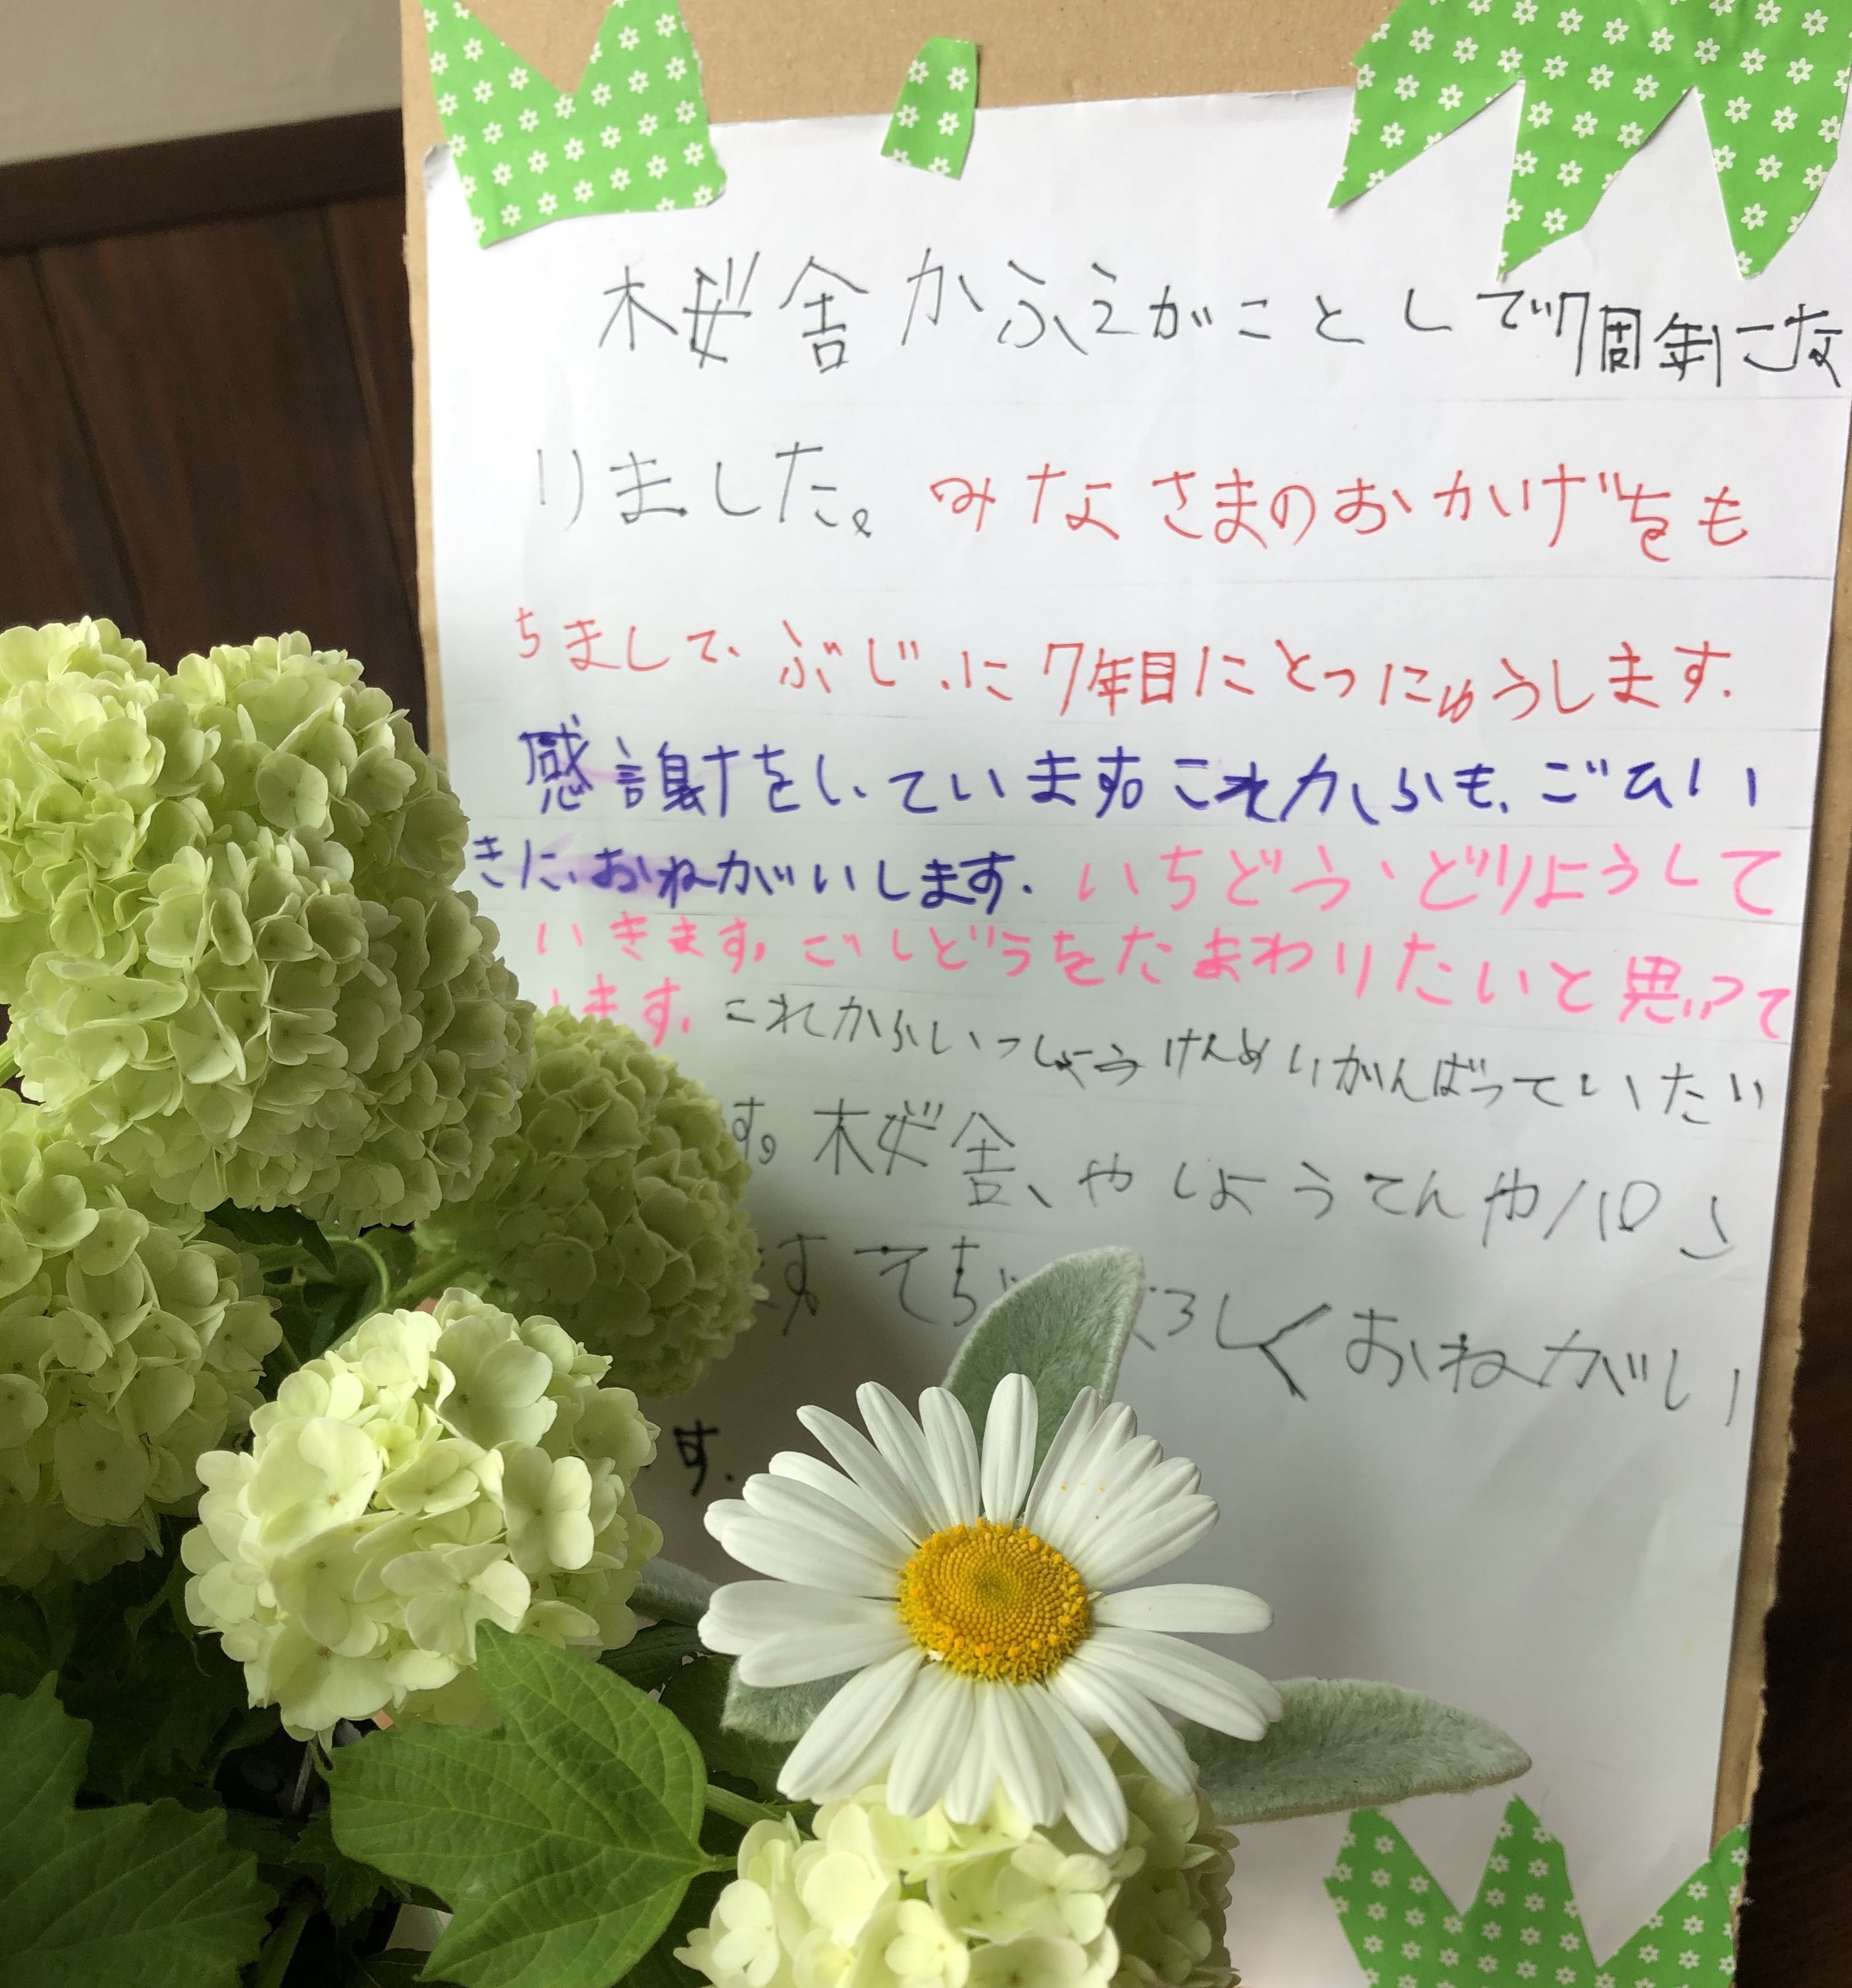 木桜舎かふえがことしで7周年にな
りました。みなさまのおかげをも
ちまして、ぶじ、に7年目にとつにゅうします.
感謝をしています。これからも、ごひい
きに、おねがいします.いちどう、どりょうして
いきます。ごしどうをたまわりたいと思って
います.これからいっしょうけんめいがんばっていたい
す。木桜舎、や しょうてんや
ます ろしくおねがいし
す.